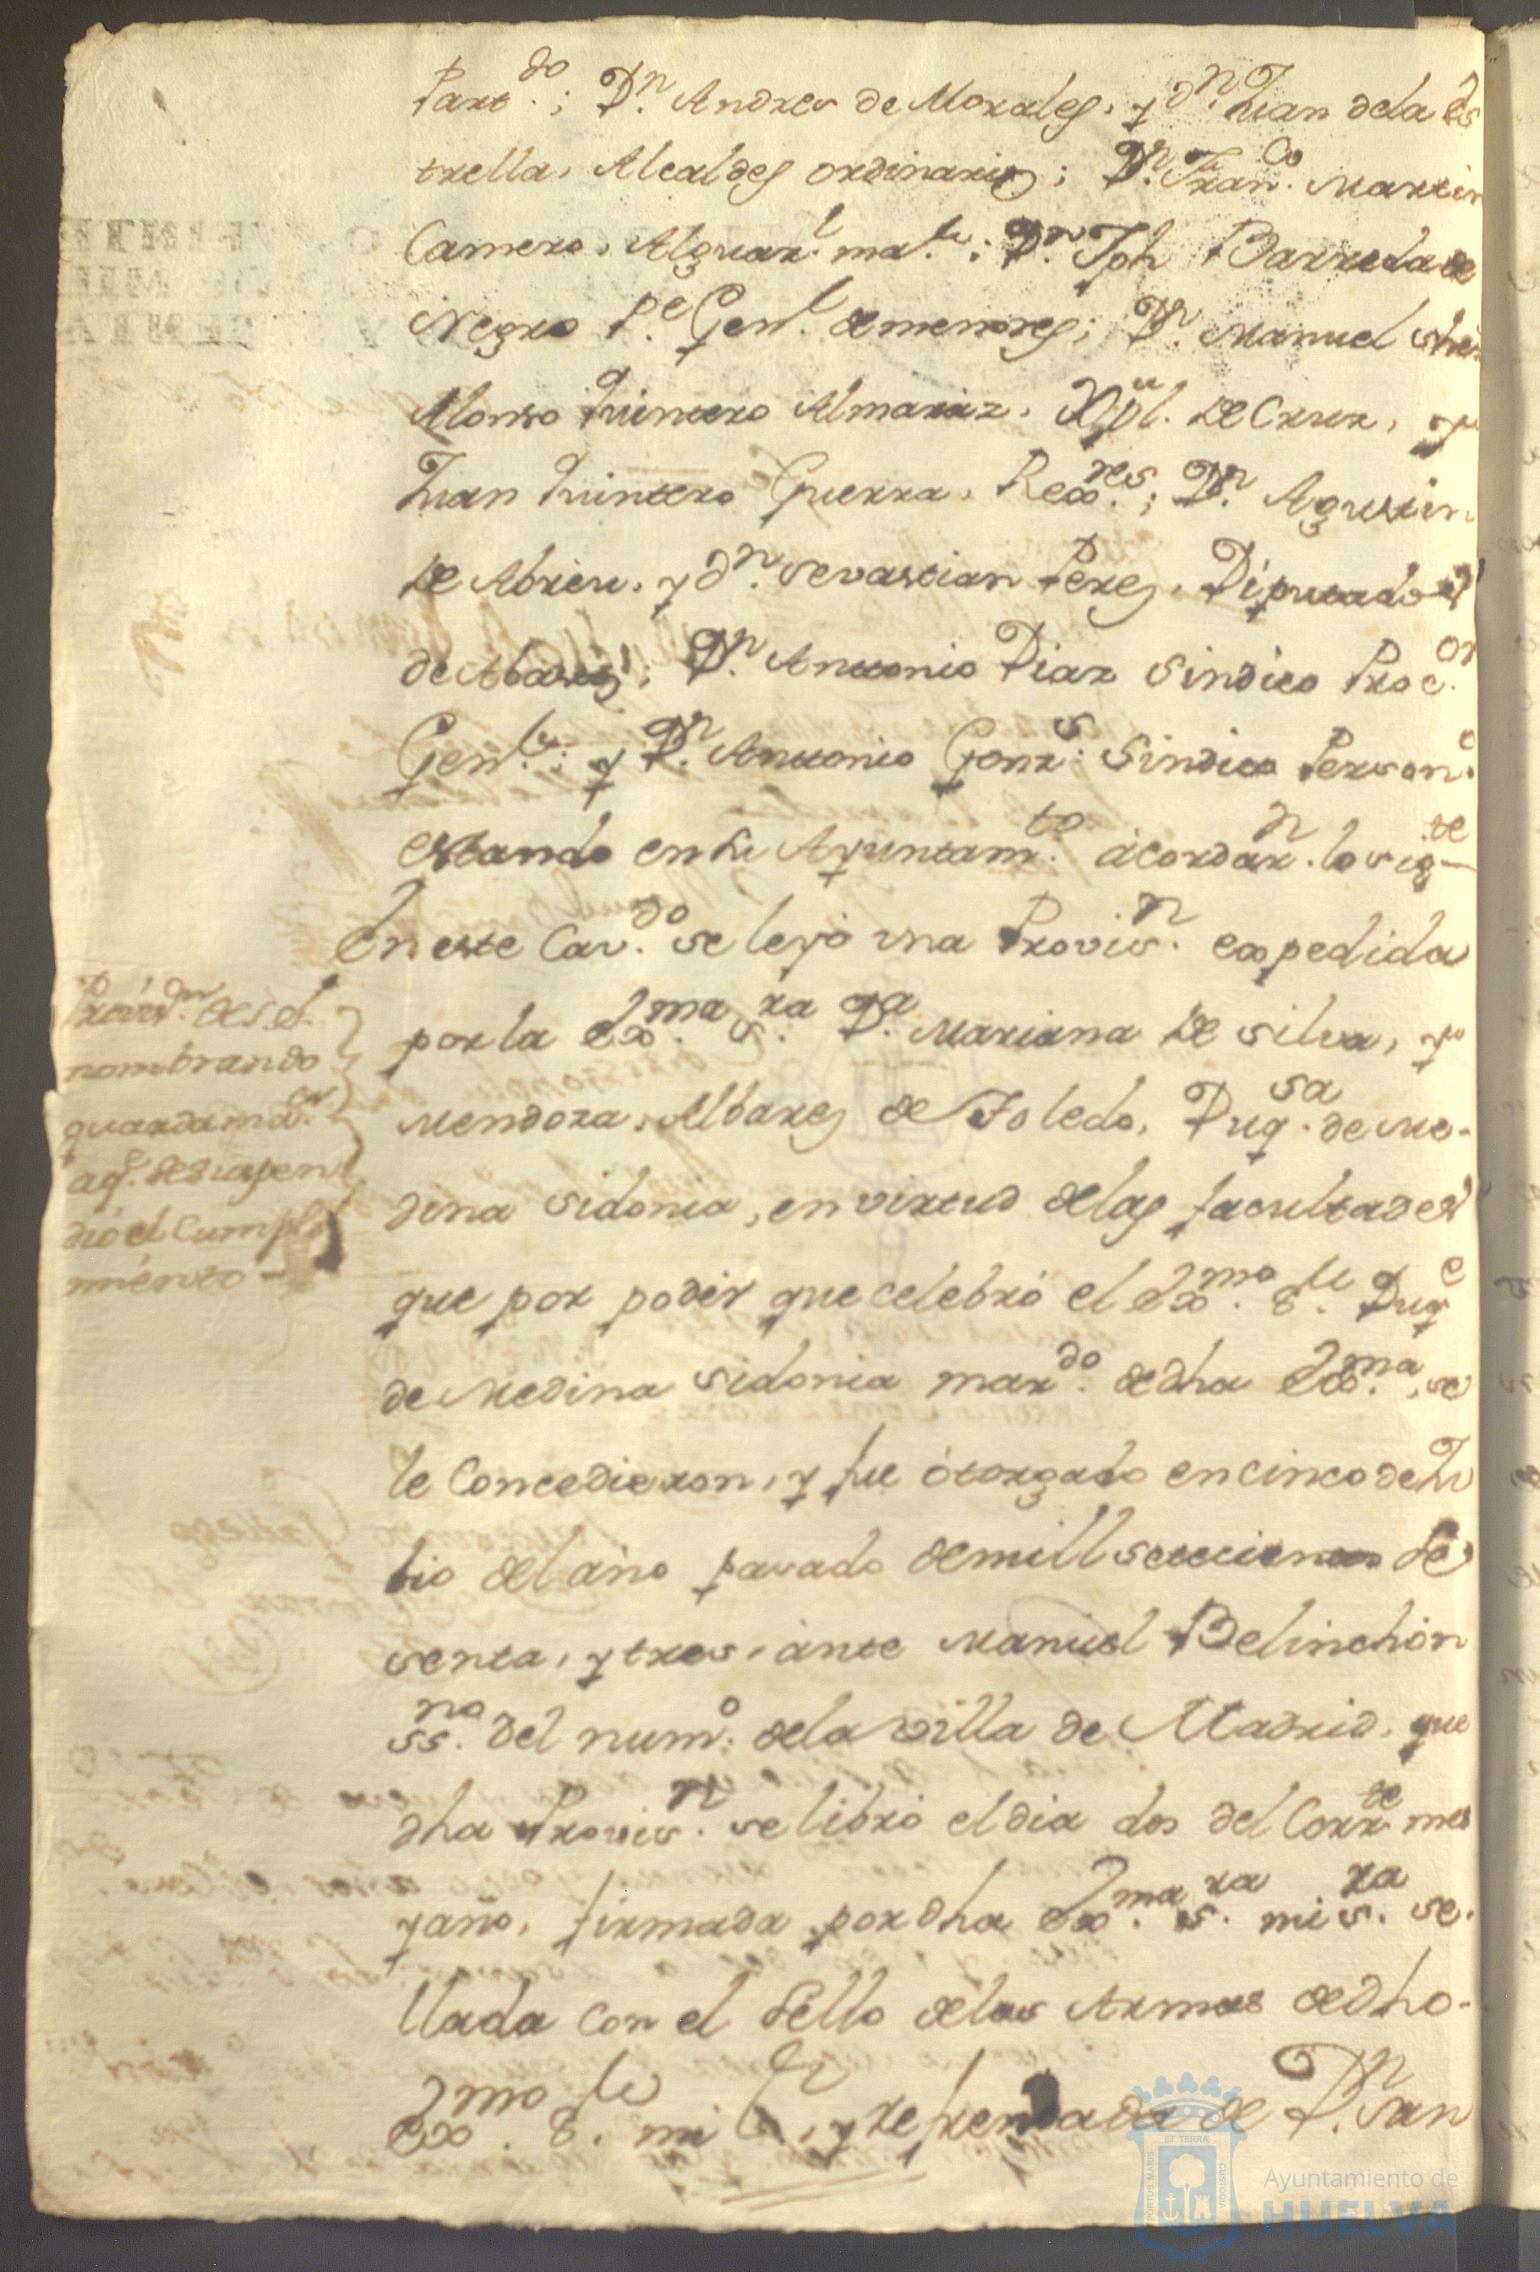 Part.do; Dn. Andres de Morales, y dn. Juan dela Es
trella, Alcaldes ordinarios; Dn. Fran.co Martin
Camero, Alguaz.l ma.or; Dn. Jph Barreda de
Negro P.e Gen.l de menores; Dn. Manuel
Alonso Quintero Almaraz, Xptl. de Cruz, y
Juan Quintero Guerra, Rex.res; Dn. Agustin
de Abreu, y dn. Sevastian Perez, Diputados
de Abastos; Dn. Antonio Diaz Sindico Proc.or
Gen.l; y Dn. Antonio Gonz.s Sindico Person.o
estando en su Ayuntam.to acordar.n lo sig.te
En este Cav.do se leyó una Provis.n expedida
por la Exma. S.ra D.a Mariana de Silva, y
Mendoza, Albarez de Toledo, Duq.sa de Me-
dina Sidonia, en virtud delas facultades
que por poder que celebró el Exmo. S.or Duq.e
de Medina Sidonia mar.do de dha Exma., se
le Concedieron, y fue ótorgado en cinco de Ju
lio del año pasado de mill setecientos se
senta, y tres, ante Manuel Belinchon
ss.no del num.o dela villa de Madrid, que
dha Provis.n se libró el dia dos del Corr.te mes
y año, firmada por dha Exma. S.ra mi S.ra se-
llada con el sello delas Armas de dho-
Exmo. S.or mi S.r, y refrendada de Dn. Juan
Provis.on de S.E.
nombrando
guarda ma.or
a q.e se suspen
dió el Cumpli
miento
Ayuntamiento de
HUELVA
PORTUS MARIS
ET TERRÆ
CUSTODIA